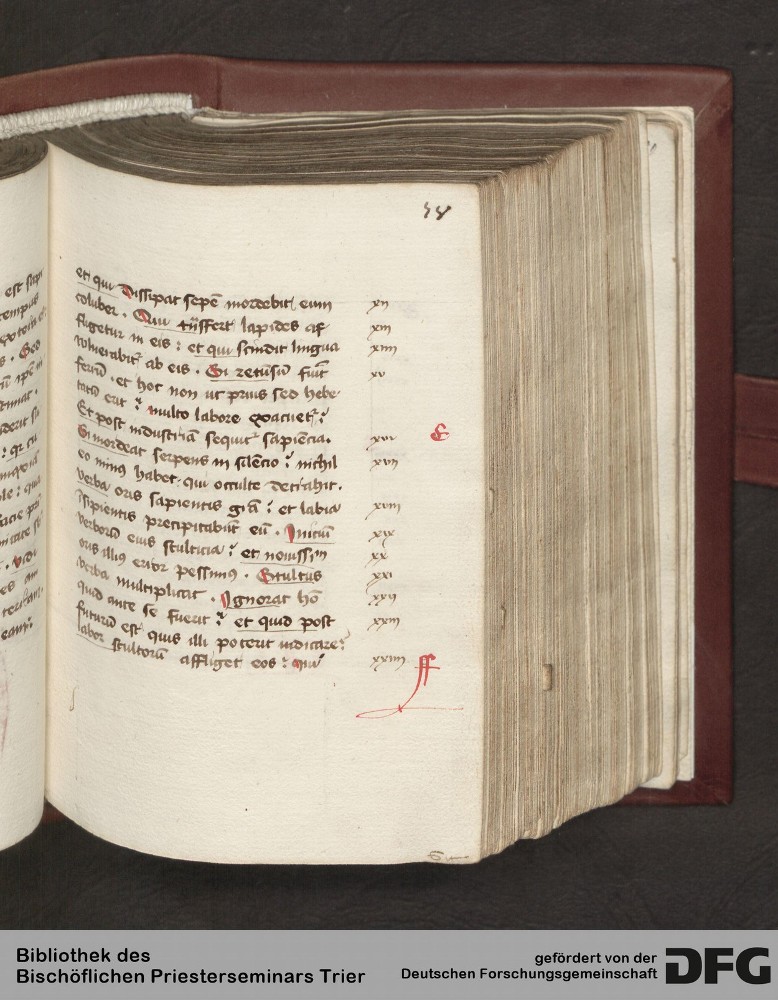 et qui dissipat sepē mordebit eum xii
coluber . Qui trāsfert lapides af xiii
fligetur in eis : et qui scindit lingua xiiii
vulnerabit᷑ ab eis . Si retusū fuīt xv
ferrū . et hoc non ut prius sed hebe
tatū erit : multo labore exacuet᷑ :
Et post industriā sequit᷑ sapiēcia . xvi E
Si mordeat serpens in silēcio : nichil xvii
eo minꝰ habet . qui occulte detrahit .
verba oris sapientis grā : et labia xviii
īsipientis precipitabūt eū . Iniciū xix
verborū eius stulticia : et nouissim xx
oris illiꝰ error pessimꝰ . Stultus xxi
verba multiplicat . Ignorat hō xxii
quid ante se fuerit : et quid post xxiii
futurū est quis illi poterit indicare :
labor stultorū affliget eos : qui xxiiii
ff
est sapi
tempus
Sed
ipē in
qr cū
qua
Vidi
Bibliothek des
Bischöflichen Priesterseminars Trier
gefördert von der
Deutschen Forschungsgemeinschaft
DFG